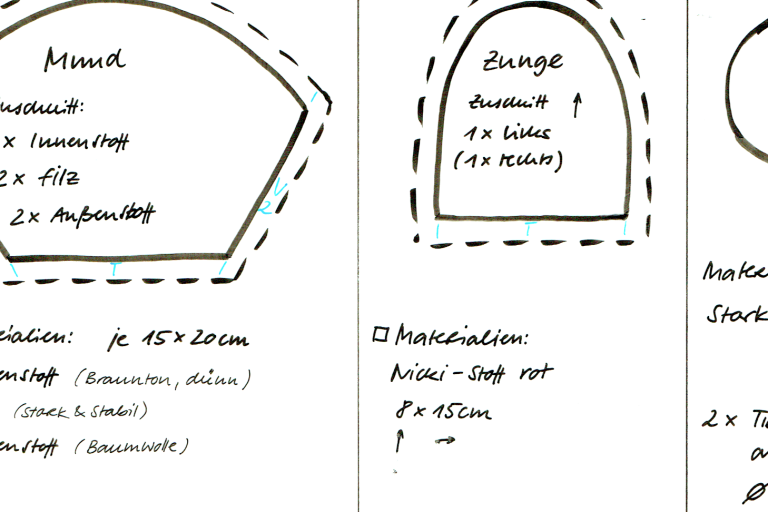 Mund
uschnitt:
x Innenstoff
2x Filz
2x Außenstoff
V
2
T
rialien: je 15x20cm
enstoff (Braunton, dünn)
(stark & stabil)
enstoff (Baumwolle)
Zunge
Zuschnitt ↑
1x links
(1x rechts)
T
Materialien:
Nicki-Stoff rot
8x15cm
↑ →
Mater
Stark
2x
Ø